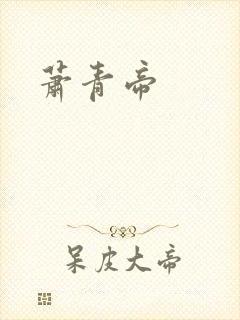 萧青帝
呆皮大帝